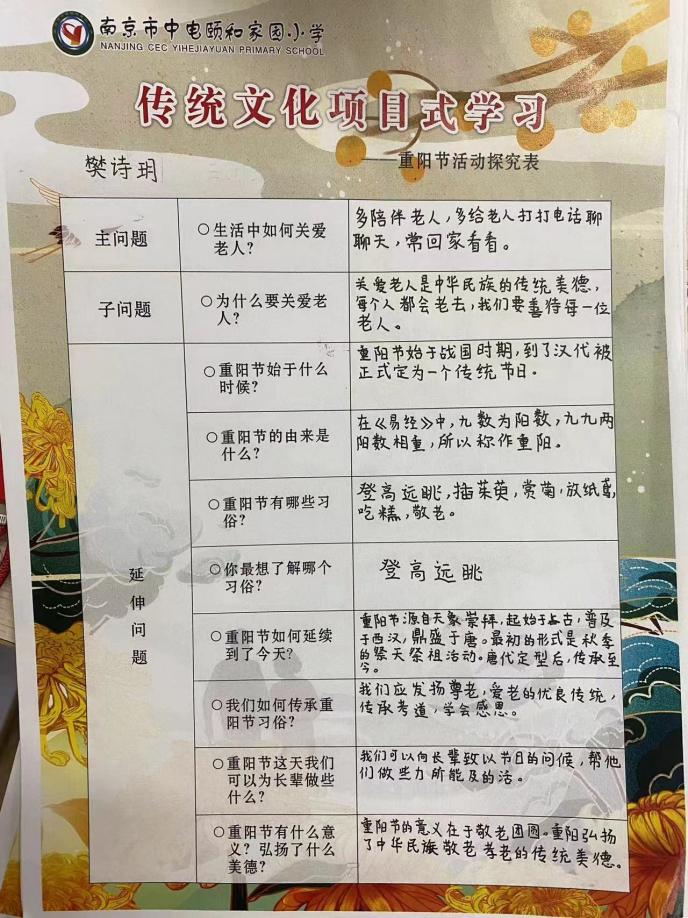 南京市中电颐和家园小学
NANJING CEC YIHEJIAYUAN PRIMARY SCHOOL
传统文化项目式学习
——重阳节活动探究表
樊诗玥
主问题
○生活中如何关爱
老人?
多陪伴老人，多给老人打打电话聊
聊天，常回家看看。
子问题
○为什么要关爱老
人?
关爱老人是中华民族的传统美德，
每个人都会老去，我们要善待每一位
老人。
延伸问题
○重阳节始于什么
时候?
重阳节始于战国时期，到了汉代被
正式定为一个传统节日。
○重阳节的由来是
什么?
在《易经》中，九数为阳数，九九两
阳数相重，所以称作重阳。
○重阳节有哪些习
俗?
登高远眺，插茱萸，赏菊，放纸鸢，
吃糕，敬老。
○你最想了解哪个
习俗?
登高远眺
○重阳节如何延续
到了今天?
重阳节源自天象崇拜，起始于上古，普及
于西汉，鼎盛于唐。最初的形式是秋季
的祭天祭祖活动。唐代定型后，传承至
今。
○我们如何传承重
阳节习俗?
我们应发扬尊老，爱老的优良传统，
传承孝道，学会感恩。
○重阳节这天我们
可以为长辈做些
什么?
我们可以向长辈致以节日的问候，帮他
们做些力所能及的活。
○重阳节有什么意
义? 弘扬了什么
美德?
重阳节的意义在于敬老团圆。重阳弘扬
了中华民族敬老孝老的传统美德。